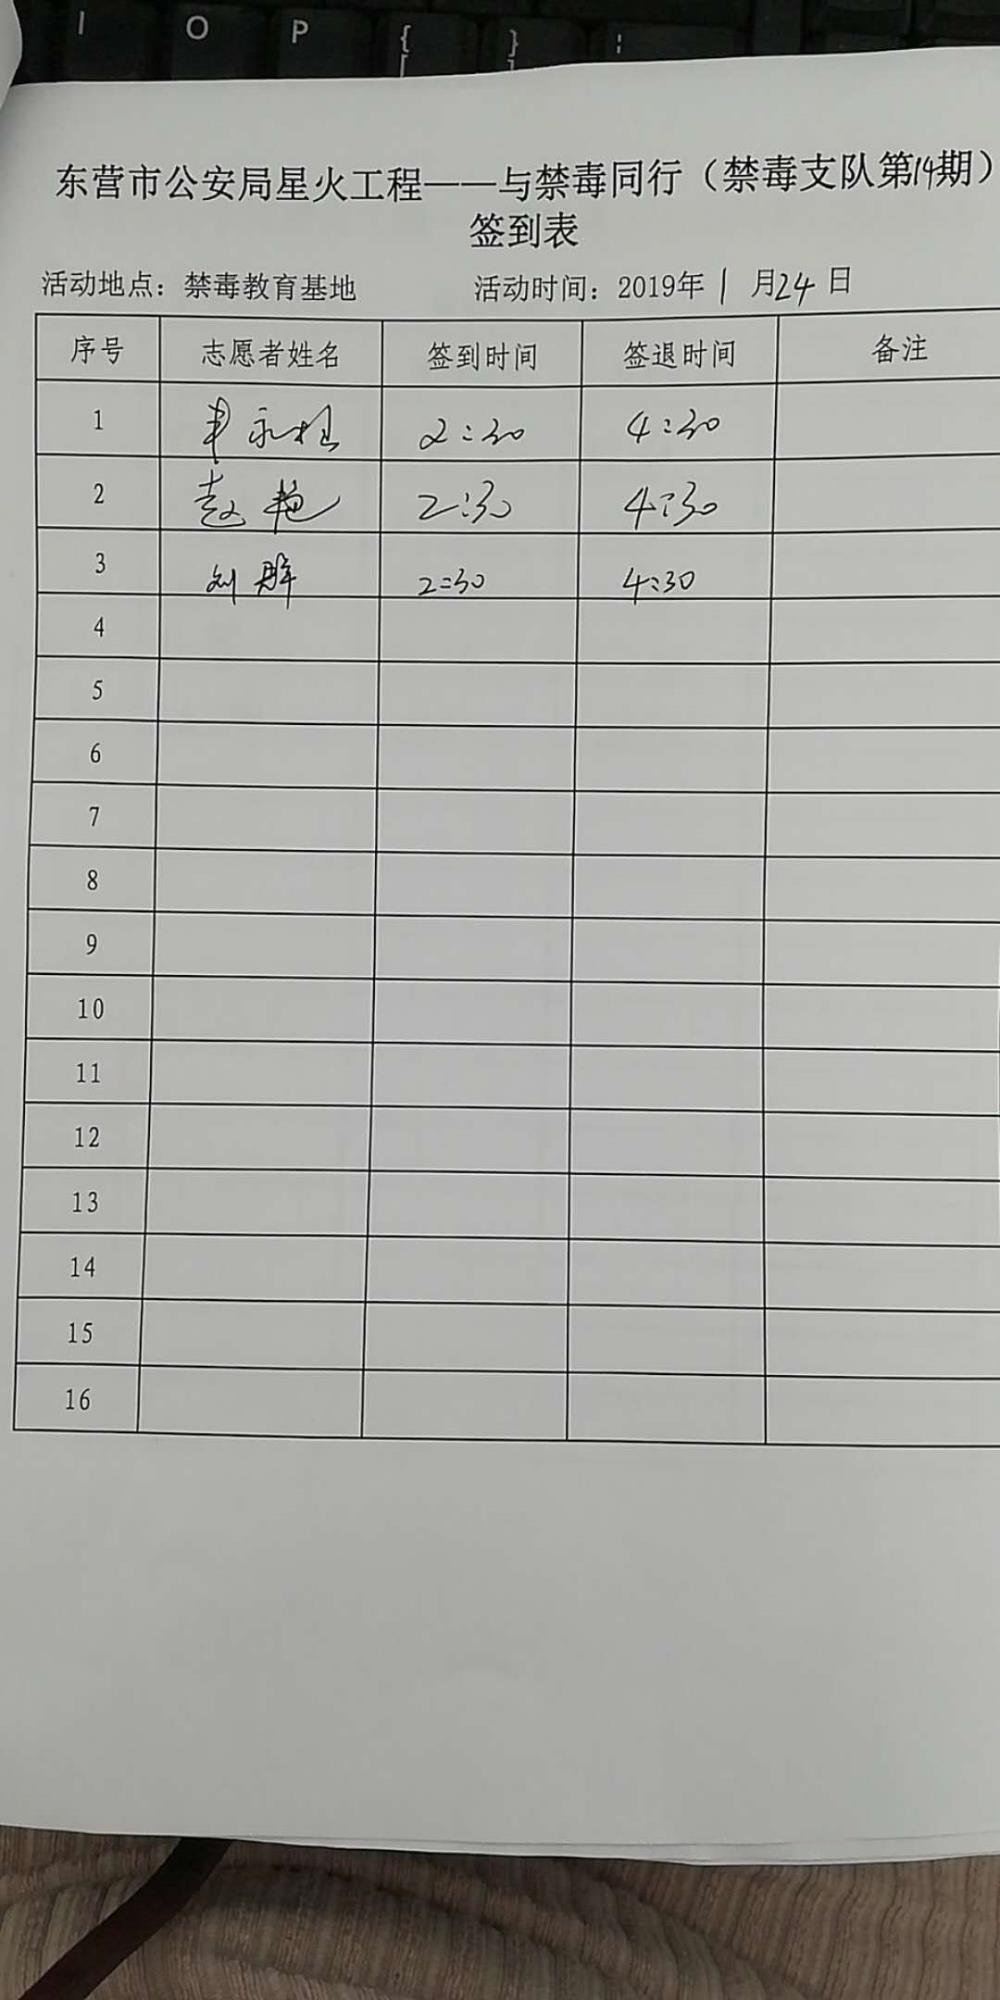 I O P { [ } ] :
东营市公安局星火工程——与禁毒同行（禁毒支队第14期）
签到表
活动地点：禁毒教育基地 活动时间：2019年1月24日
序号 志愿者姓名 签到时间 签退时间 备注
1 2:30 4:30
2 赵艳 2:30 4:30
3 刘群 2:30 4:30
4
5
6
7
8
9
10
11
12
13
14
15
16